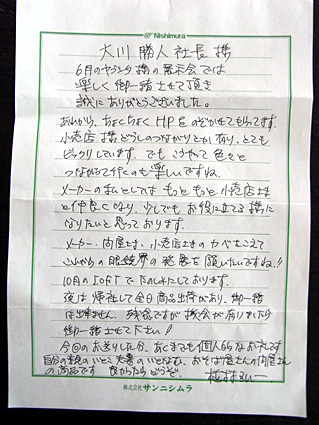 Nishimura
大川 勝人社長 様
6月のヤブシタ様の展示会では
楽しく御一緒させて頂き
誠にありがとうございました。
あれから、ちょくちょくHPをのぞかせてもらってます。
小売店様どうしのつながりとか有り、とても
ビックリしています。でもこうやって色々と
つながって行くのも楽しいですね。
メーカーの私としては もっともっと小売店さま
と仲良くなり、少しでもお役に立てる様に
なりたいと思っております。
メーカー、問屋さま、小売店さまのカベをこえて
これからの眼鏡界の発展を願いたいですね!!
10月のIOFTでたのしみにしております。
夜は帰社して全日商品出荷があり、御一緒
は出来ません。残念ですが機会が有りましたら
御一緒させて下さい!
今回のお送りした分、あくまでも個人的なお礼です
自分の主役のいとこ夫妻のいとなむ、おそば屋さんの問屋さん
の商品です よかったらどうぞ。
株式会社 サンニシムラ